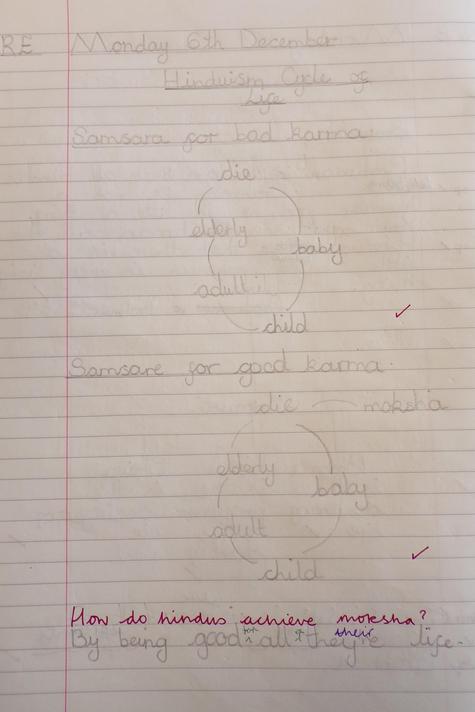 RE Monday 6th December
Hinduism Cycle of
Life
Samsara for bad karma.
die
elderly
baby
adult
child
Samsare for good karma.
die moksha
elderly
baby
adult
child
How do hindus achieve moksha?
By being good for all of they're their life.